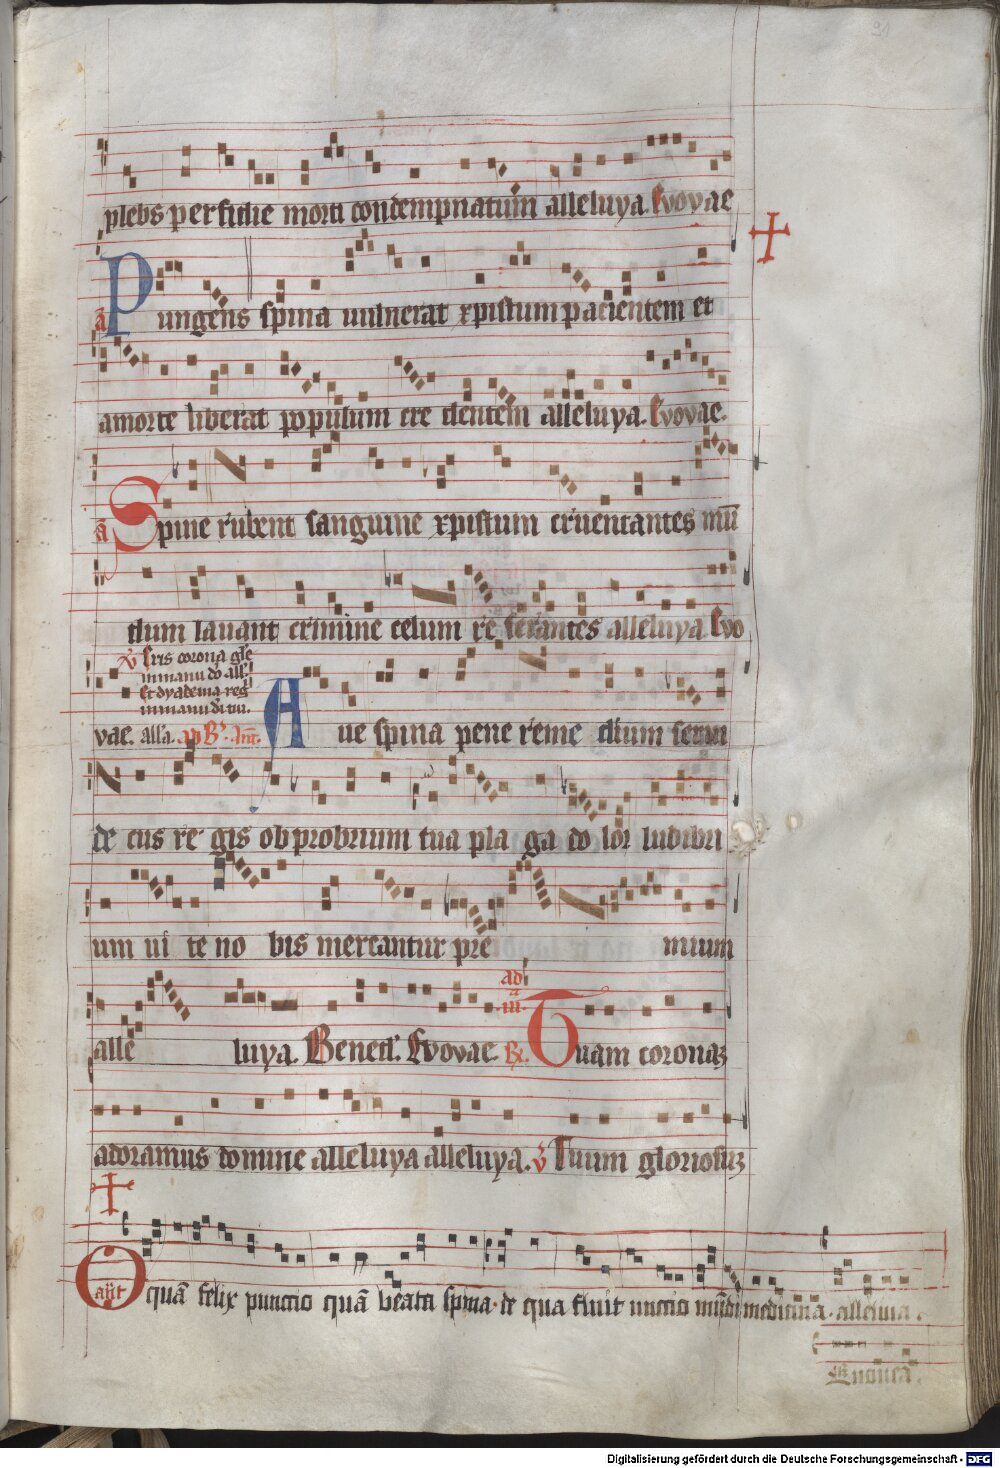 21
plebs perfidie morti condempnatum alleluya. Evovae
a Pungens spina vulnerat xpistum pacientem et
amorte liberat populum cre dentem alleluya. Evovae.
a Spine rubent sanguine xpistum cruentantes mū
dum lavant crimine celum re serantes alleluya Evo
℣ Eris corona gl̄e
inmanu do all'
Et dyadema reg
inmanu dī tui.
vae. all'a. ad B'. Ant. Ave spina pene reme dium servi
de cus re gis obprobrium tua pla ga do lor ludibri
um vi te no bis mercantur pre mium
ad
iii
alle luya. Bened'. Evovae. ℟. Tuam coronaꝫ
adoramus domine alleluya alleluya. ℣ Tuum gloriosuꝫ
añt O quā felix punctio quā beata spina · de qua fluit unctio mūdi medicina · alleluia .
Euouea .
Digitalisierung gefördert durch die Deutsche Forschungsgemeinschaft - DFG